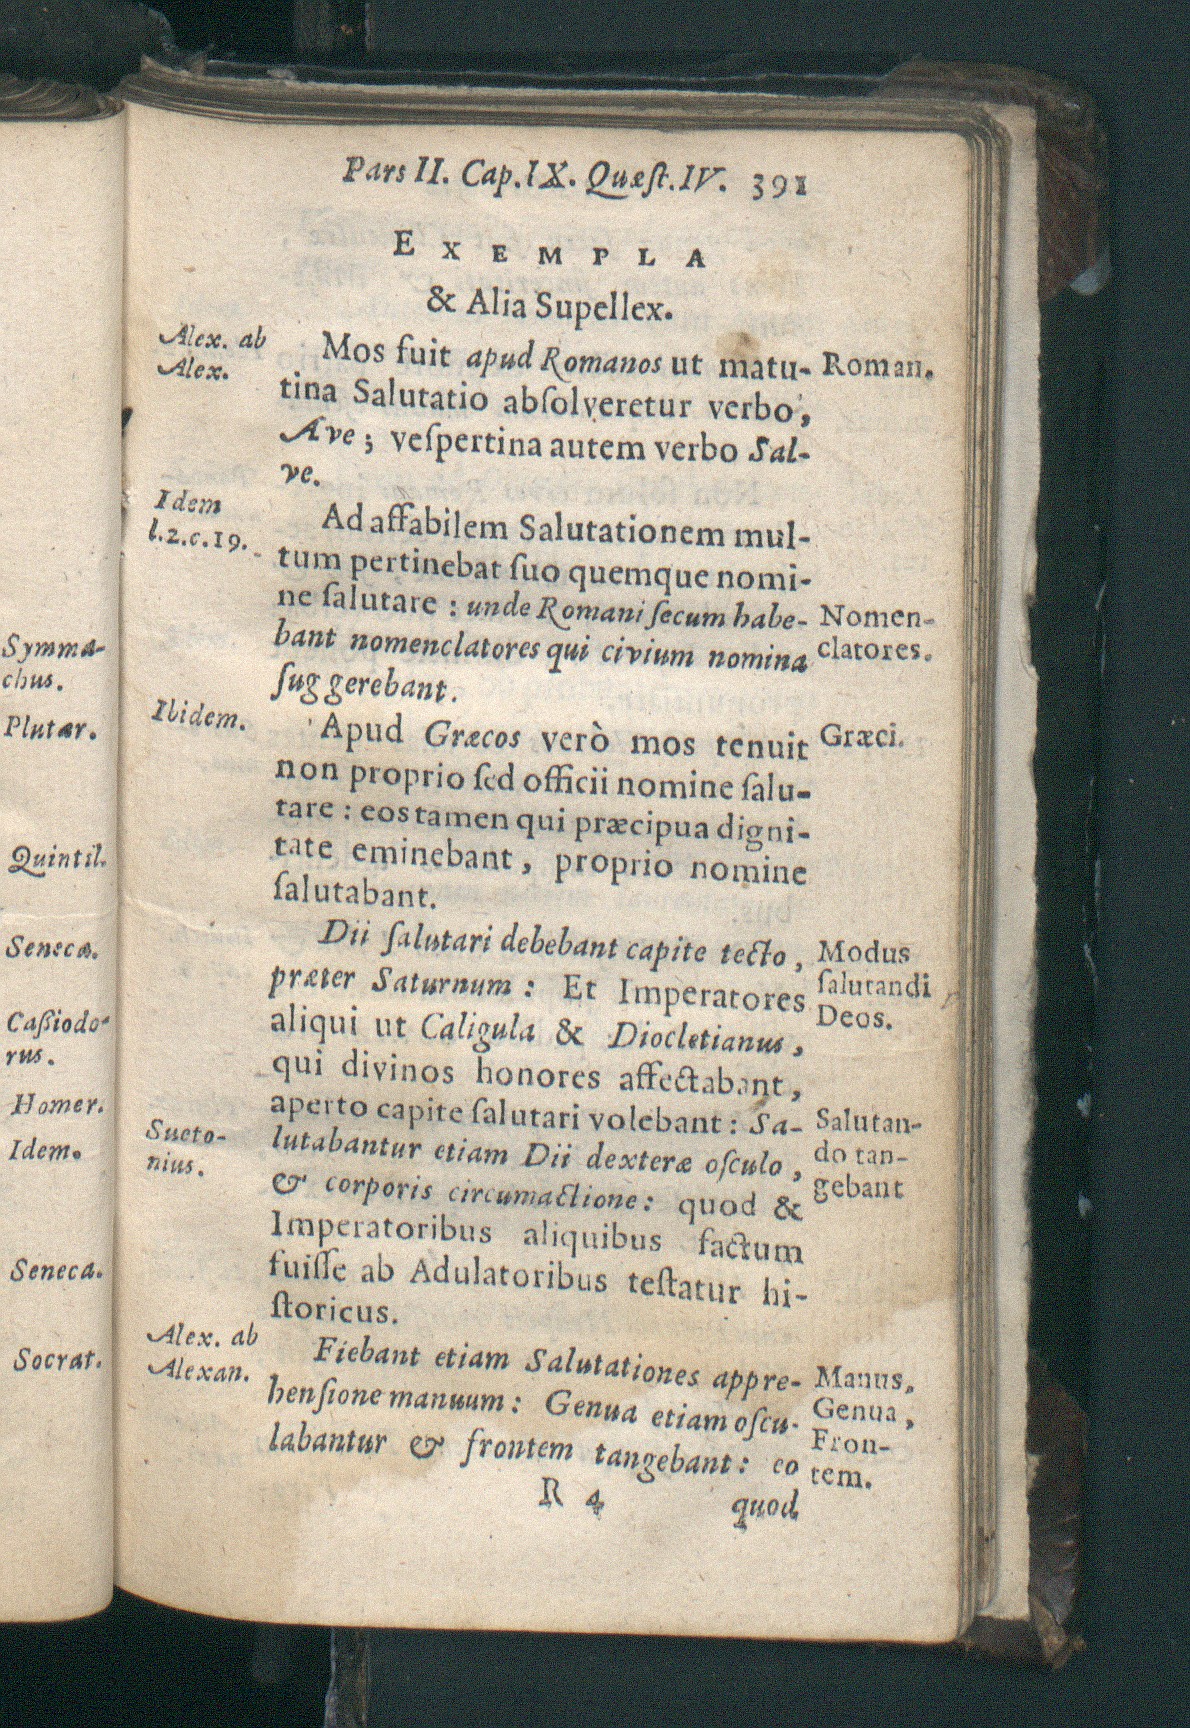 Symma-
chus.
Plutar.
Quintil.
Seneca.
Caßiodo-
rus.
Homer.
Idem.
Seneca.
Socrat.
Pars II. Cap. IX. Quæſt. IV. 391
EXEMPLA
& Alia Supellex.
Alex. ab
Alex.
Mos fuit apud Romanos ut matu-
tina Salutatio abſolveretur verbo,
Ave; veſpertina autem verbo Sal-
ve.
Roman.
Idem
l.2.c.19.
Ad affabilem Salutationem mul-
tum pertinebat ſuo quemque nomi-
ne ſalutare : unde Romani ſecum habe-
bant nomenclatores qui civium nomina
ſuggerebant.
Nomen-
clatores.
Ibidem.
Apud Græcos verò mos tenuit
non proprio ſed officii nomine ſalu-
tare : eos tamen qui præcipua digni-
tate eminebant, proprio nomine
ſalutabant.
Græci.
Dii ſalutari debebant capite tecto,
præter Saturnum : Et Imperatores
aliqui ut Caligula & Diocletianus,
qui divinos honores affectabant,
aperto capite ſalutari volebant : Sa-
lutabantur etiam Dii dexteræ oſculo,
& corporis circumactione : quod &
Imperatoribus aliquibus factum
fuiſſe ab Adulatoribus teſtatur hi-
ſtoricus.
Modus
ſalutandi
Deos.
Sueto-
nius.
Salutan-
do tan-
gebant
Alex. ab
Alexan.
Fiebant etiam Salutationes appre-
henſione manuum : Genua etiam oſcu-
labantur & frontem tangebant : eo
Manus,
Genua,
Fron-
tem.
R 4
quod